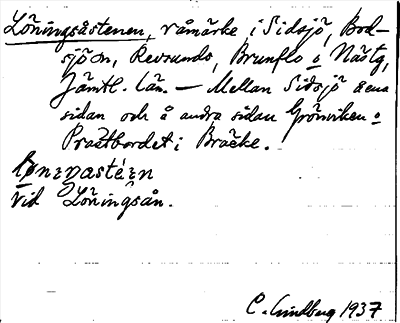 Löningsåstenen, råmärke i Sidsjö, Bod-
sjö sn, Revsunds, Brunflo o Näs tg,
Jämtl. län. — Mellan Sidsjö å ena
sidan och å andra sidan Grönviken o
Prästbordet i Bräcke.
vid Löningsån.
C. Lindberg 1937